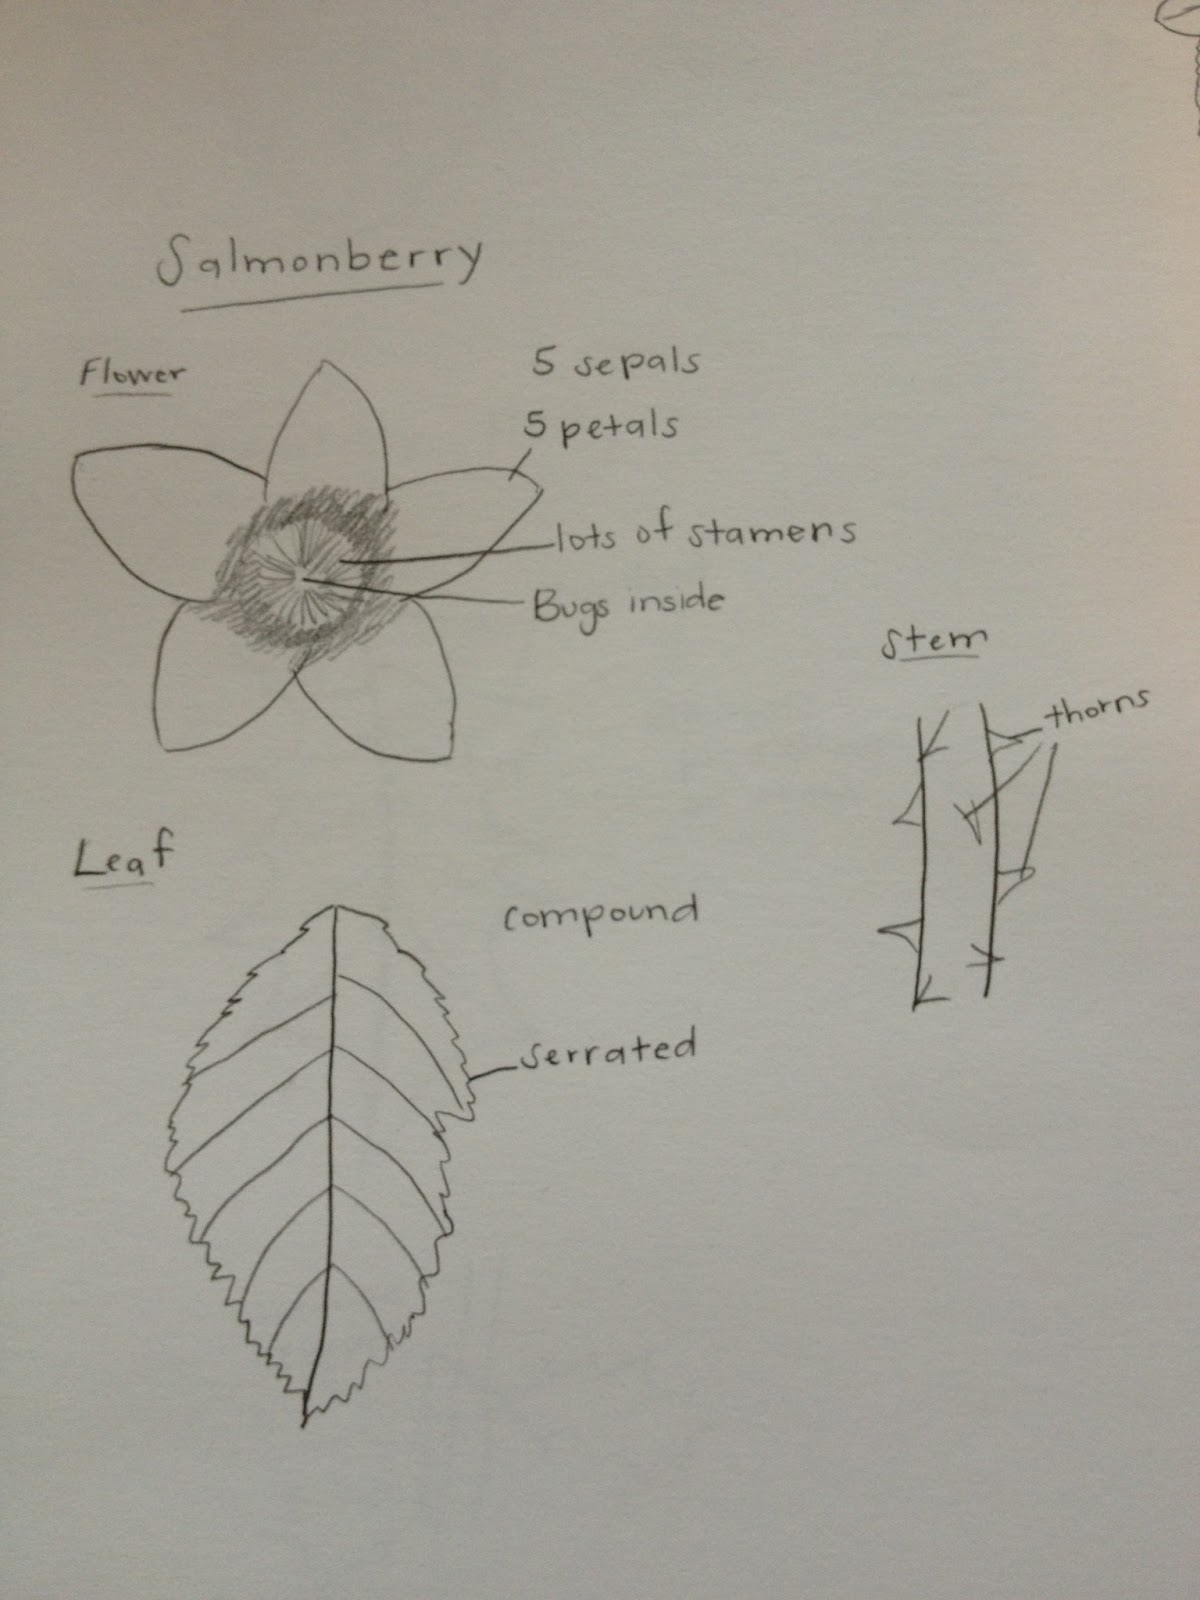 Salmonberry
Flower
5 sepals
5 petals
lots of stamens
Bugs inside
Stem
thorns
Leaf
compound
serrated